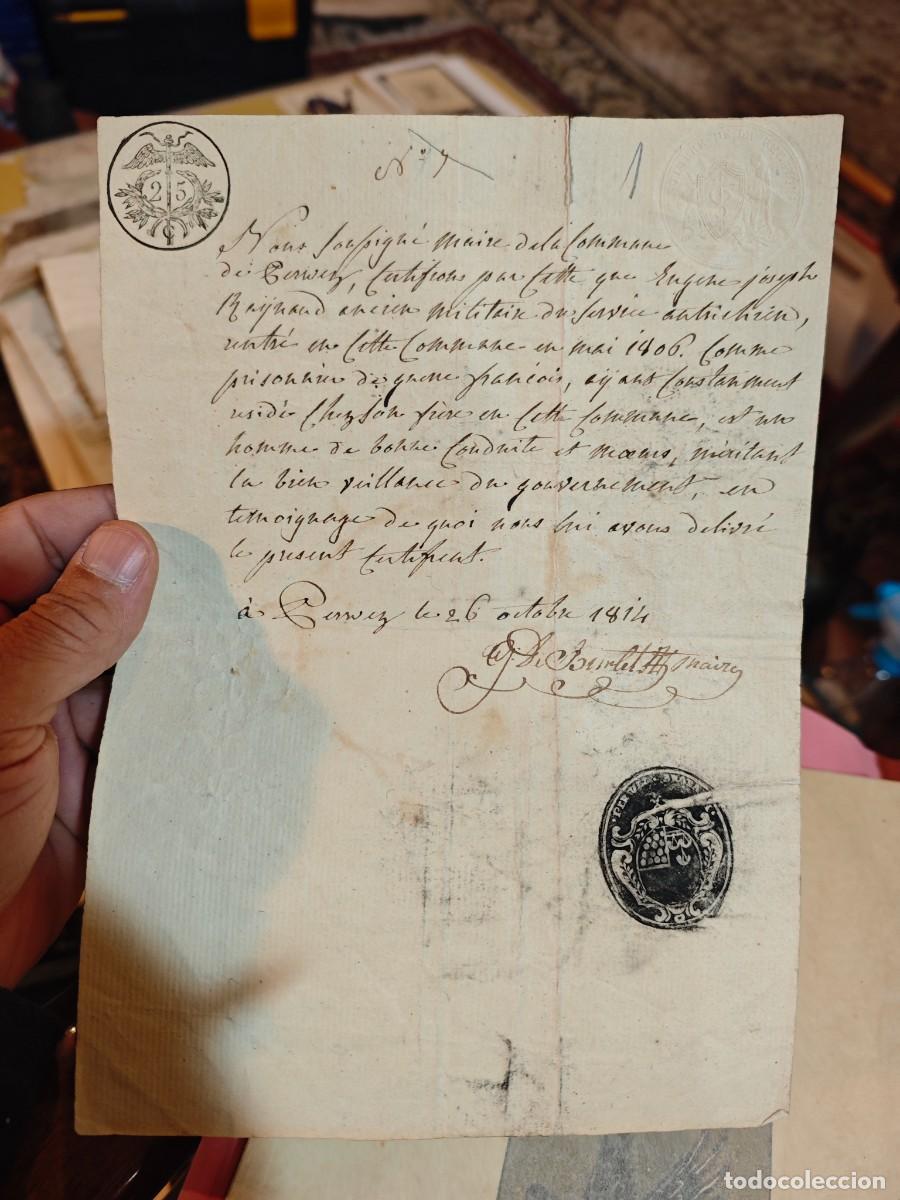 25 C
N° 7
1
Nous soussigné maire de la Commune
de Perwez, Certifions par Cette que Eugene joseph
Raÿnaud ancien militaire du Service autrichien,
rentré en Cette Commune en mai 1806. Comme
prisonnier de guerre françois, aÿant Constamment
residé Chez son frère en Cette Commune, est un
homme de bonne Conduite et mœurs, méritant
la bien veillance du gouvernement, en
temoignage de quoi nous lui avons delivré
le present Certificat.
à Perwez le 26 octobre 1814
De Burlet maire
todocoleccion